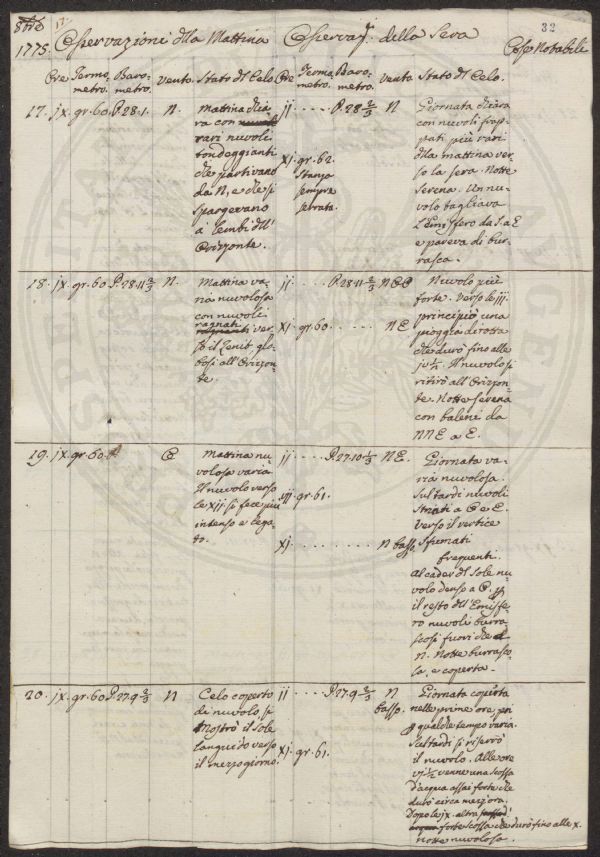 8bre 12
32
1775. Osservazioni dlla Mattina Osservaz. della Sera Cose Notabili
Ore Termo- Baro- Vento Stato dl Celo. Ore Termo- Baro- Vento Stato dl Celo.
metro. metro. metro. metro.
17. jx. gr. 60. P. 28.1. N.
Mattina chia-
ra con
rari nuvoli
tondeggianti
che partivano
da N, e che si
spargevano
a lembi dll'
Orizzonte.
jj . . . . P. 28 2/3 N
xj. gr. 62.
Stanza
sempre
serrata.
Giornata chiara
con nuvoli frap-
pati più rari
dlla mattina ver-
so la sera. Notte
serena. Un nu-
volo tagliava
l'Emisfero da S. a E
e pareva di bur-
rasca.
18. jx. gr. 60 P. 28.11 2/3 N.
Mattina va-
ria nuvolosa
con nuvoli
ragnati
ver-
so il Zenit, glo-
bosi all'Orizon-
te.
jj . . . . P. 28.11 2/3 N
xj. gr. 60 . . . . . NE
Nuvolo più
forte. Verso le jjj.
principiò una
pioggia dirotta
che durò fino alle
jv 1/2. Il nuvolo si
ritirò all'Orizon-
te. Notte serena
con baleni da
NNE a E.
19. jx. gr. 60. O
Mattina nu-
volosa varia.
Il nuvolo verso
le xjj si fece più
intenso e lega-
to.
jj . . . . P. 27.10 1/3 NE.
vjj gr. 61.
xj. . . . . . . . . N basso.
Giornata va-
ria nuvolosa.
Sul tardi nuvoli
striati a O e E.
Verso il vertice
sfumati
frequenti.
Al cader dl Sole nu-
volo denso a O.
il resto dll'Emisfe-
ro nuvoli burra-
scosi fuori che
N. Notte burrasco-
sa, e coperta.
20. jx. gr. 60 P. 27.9 2/3 N
Celo coperto
di nuvolo, si
mostrò il Sole
languido verso
il mezzogiorno.
jj . . . . P. 27.9 2/3 N
basso.
xj. gr. 61.
Giornata coperta
nelle prime ore, poi
p qualche tempo varia.
Sul tardi si riserrò
il nuvolo. Alle ore
vj 1/2 venne una scossa
d'acqua assai forte che
durò circa mezz'ora.
Dopo le jx. altra
forte scossa che durò fino alle x.
notte nuvolosa.